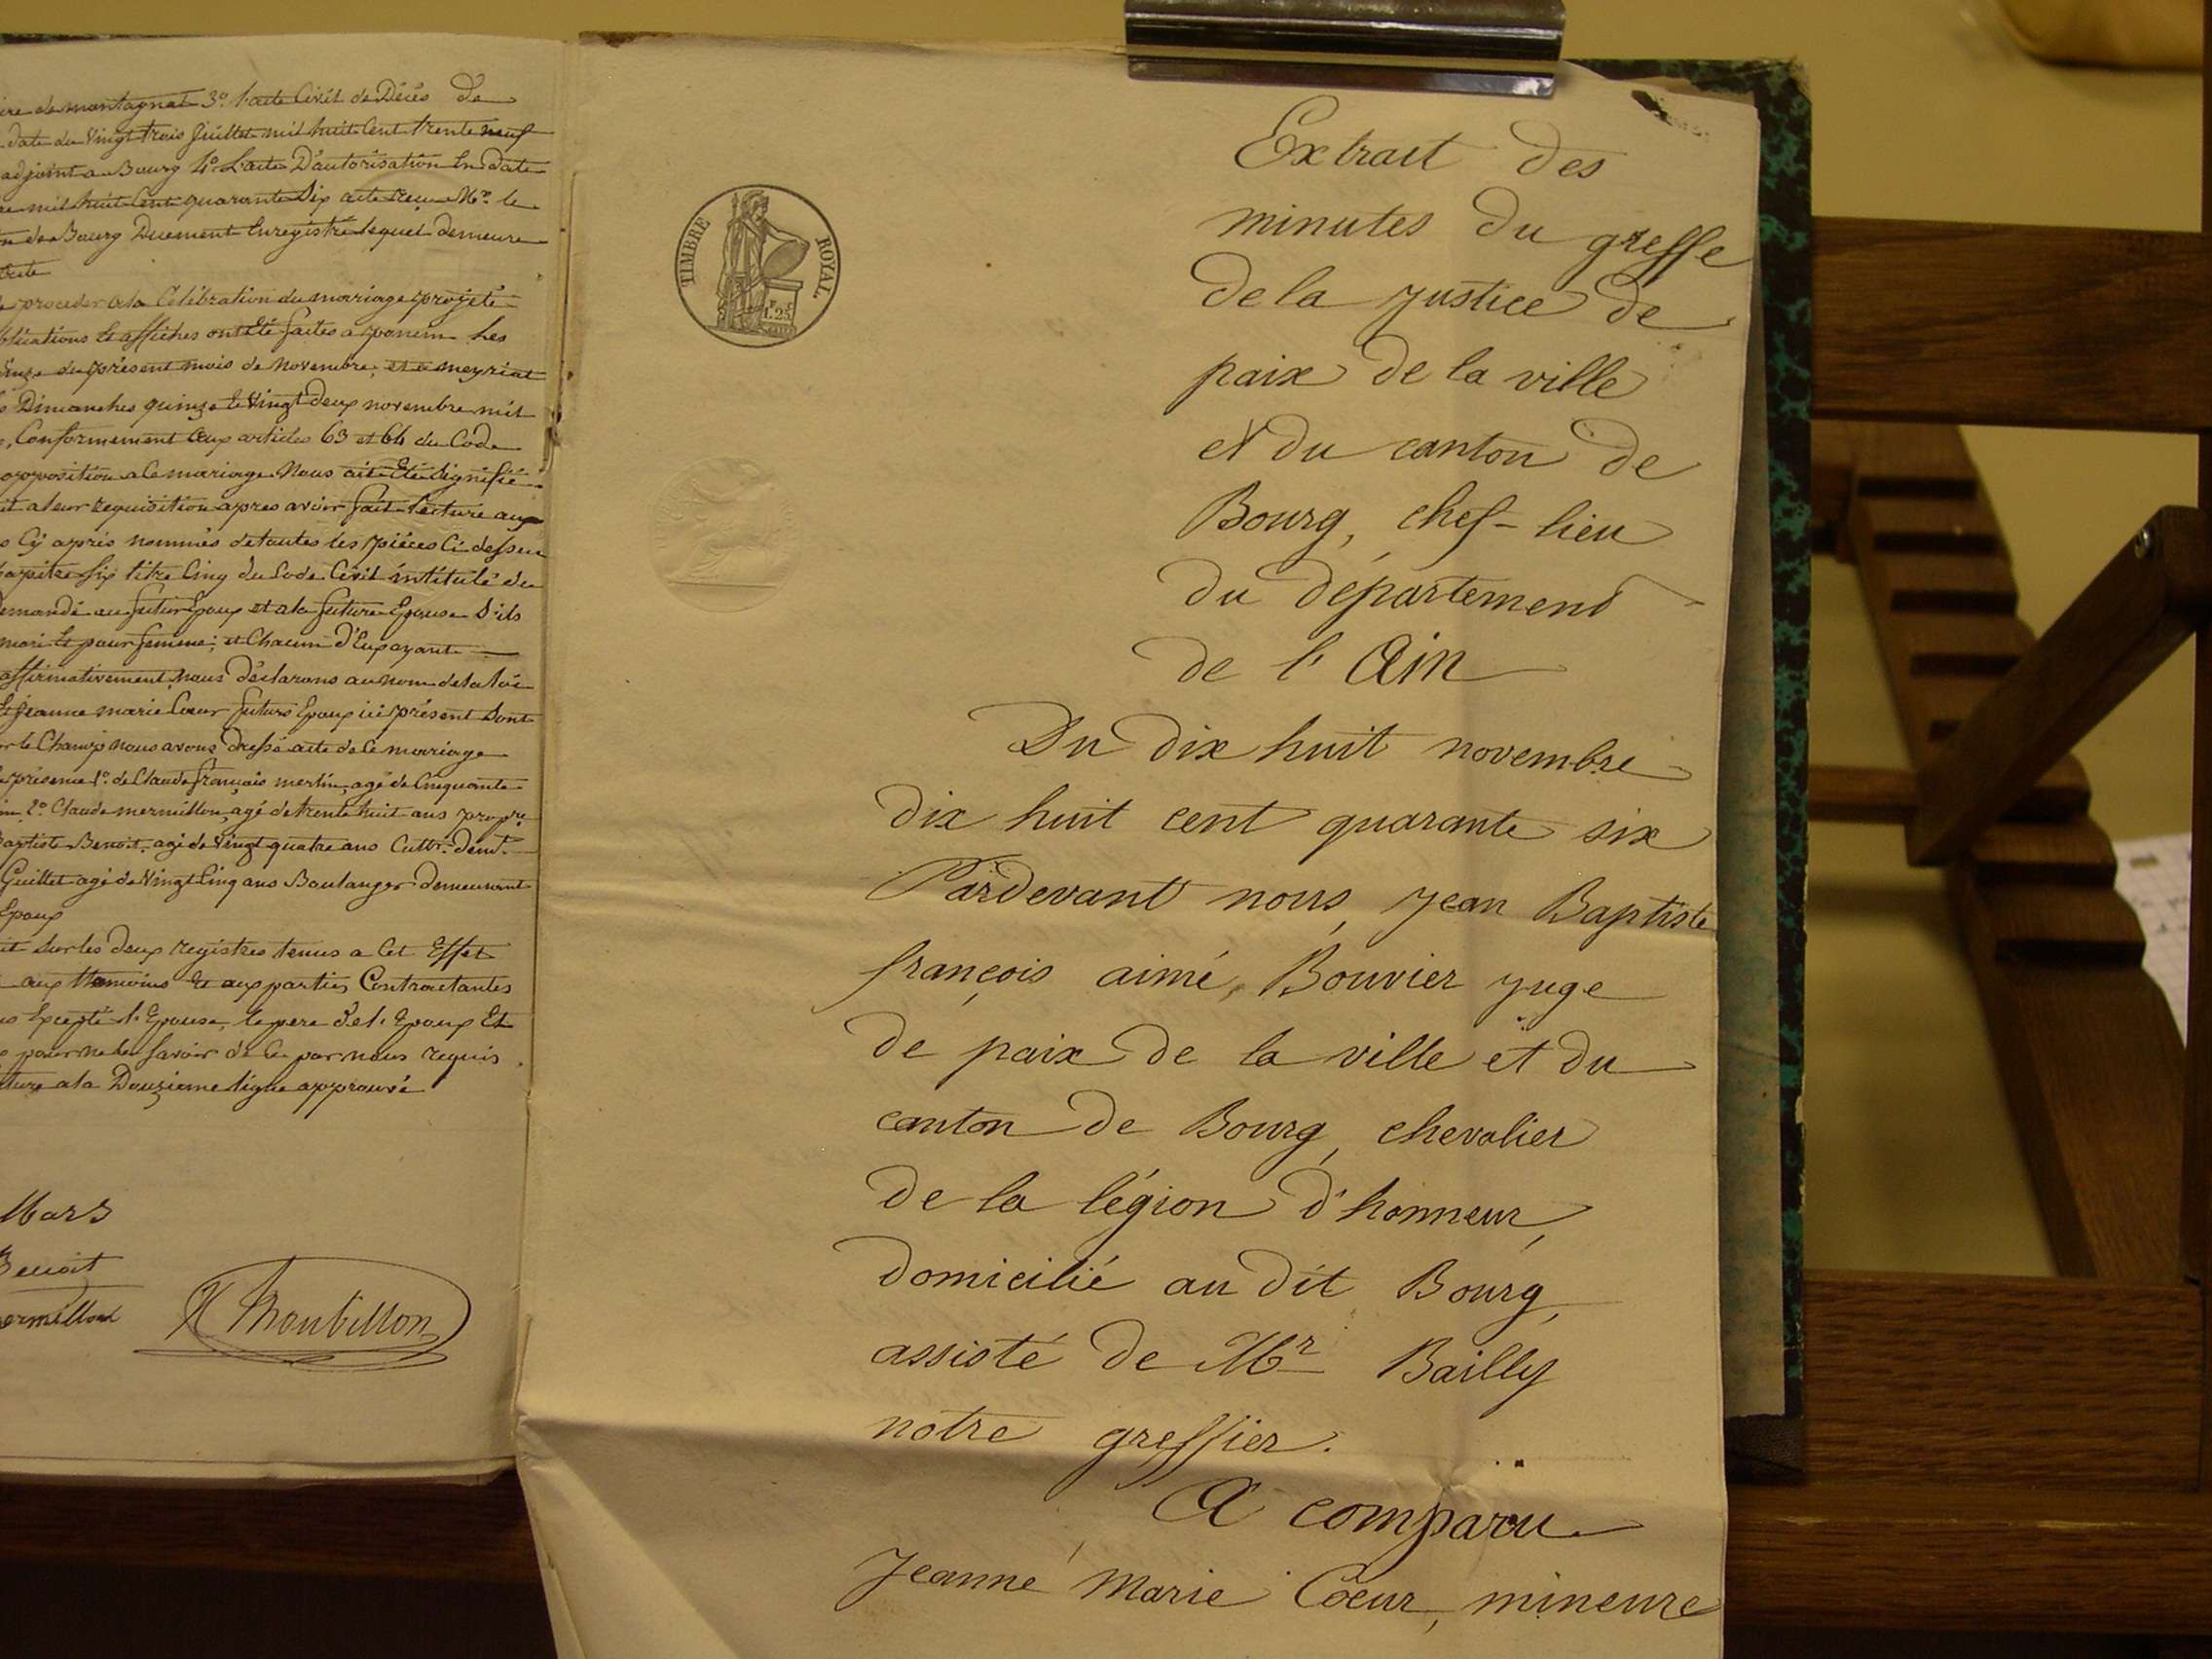 ire de montagnat 3°. l'acte Civil de Décès de
date du Vingt trois Juillet mil huit Cent trente neuf
adjoint a Bourg 4° L'acte D'autorisation En date
mil huit Cent quarante Six acte reçu Mr. le
de Bourg Duement Enregistré lequel demeure
proceder a la Célébration du mariage projeté
blications et affiches ont Eté faites a les
du présent mois de novembre, et a meyriat
Dimanches quinze et Vingt deux novembre mil
Conformement aux articles 63 et 64 du Code
opposition a ce mariage Nous ait Eté Signifiée
it a leur requisition apres avoir fait lecture aux
Cy après nommés de toutes les pièces Ci dessus
apitre Six titre Cinq du Code Civil intitulé du
emandé au futur Epoux et a la future Epouse S'ils
mari et pour femme; et Chacun D'Eux ayant
affirmativement, nous déclarons au nom de la loi
et Jeanne marie Coeur futurs Epoux ici présent Sont
le Champ nous avons dressé acte de ce mariage
présence 1°. de Claude françois merlin, agé de Cinquante
2°. Claude mermillon, agé de trente huit ans propre
Baptiste Benoit, agé de Vingt quatre ans Cultr. demt.
Guillet agé de Vingt Cinq ans Boulanger demeurant
Epoux
it sur les deux registres tenus a Cet Effet
aux temoins et aux parties Contractantes
Excepté l'Epouse, le pere de l'Epoux Et
pour ne le Savoir de Ce par nous requis
ture a la Douzieme ligne approuvé
Mars
Benoit
ermillon
TIMBRE ROYAL
F. 1.25
Extrait des
minutes du greffe
de la justice de
paix de la ville
et du canton de
Bourg, chef-lieu
du département
de l'Ain
Du dix huit novembre
dix huit cent quarante six
Pardevant nous, Jean Baptiste
françois aimé, Bouvier juge
de paix de la ville et du
canton de Bourg, chevalier
de la légion d'honneur,
domicilié au dit Bourg,
assisté de Mr Bailly
notre greffier.
A comparu
Jeanne Marie Coeur, mineure